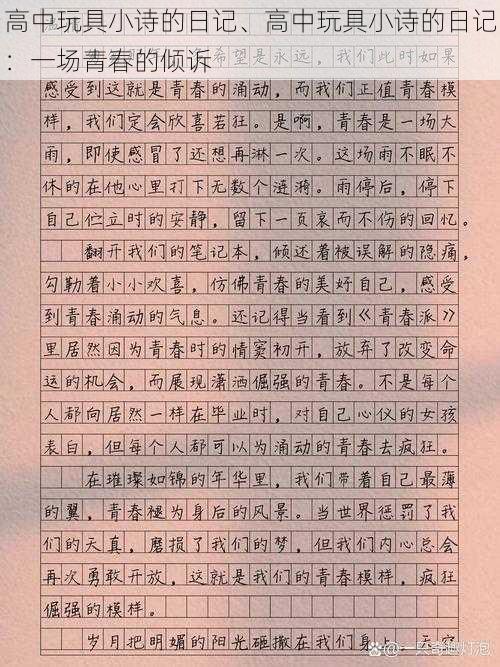 高中玩具小诗的日记、高中玩具小诗的日记
：一场青春的倾诉
希望是永远，我们此时如果
感受到这就是青春的涌动，而我们正值青春模
样，我们定会欣喜若狂。是啊，青春是一场大
雨，即使感冒了还想再淋一次。这场雨不眠不
休的在他心里打下无数个涟漪。雨停后，停下
自己伫立时的安静，留下一页哀而不伤的回忆。
翻开我们的笔记本，倾述着被误解的隐痛，
勾勒着小小欢喜，仿佛青春的美好自己，感受
到青春涌动的气息。还记得当看到《青春派》
里居然因为青春时的情窦初开，放弃了改变命
运的机会，而展现潇洒倔强的青春。不是每个
人都向居然一样在毕业时，对自己心仪的女孩
表白，但每个人都可以为涌动的青春去疯狂。
在璀璨如锦的年华里，我们带着自己最薄
的翼，青春褪为身后的风景。当世界惩罚了我
们的天真，磨损了我们的梦，但我们内心总会
再次勇敢开放，这就是我们的青春模样，疯狂
倔强的模样。
岁月把明媚的阳光砸撒在我们身上，天空
一只奇迹灯泡